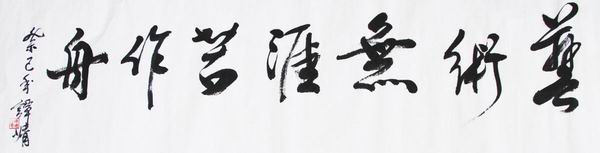 藝術無涯苦作舟
癸巳年 譚婧